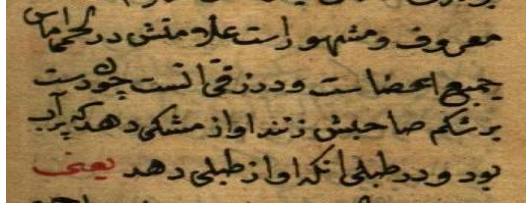 معروف و مشهور است علامتش در لحمی آماس
جمیع اعضاست و در زقی آنست چون دست
بر شکم صاحبش زنند اواز مشکی دهد که پر آب
بود و در طبلی آنکه اواز طبلی دهد یعنی